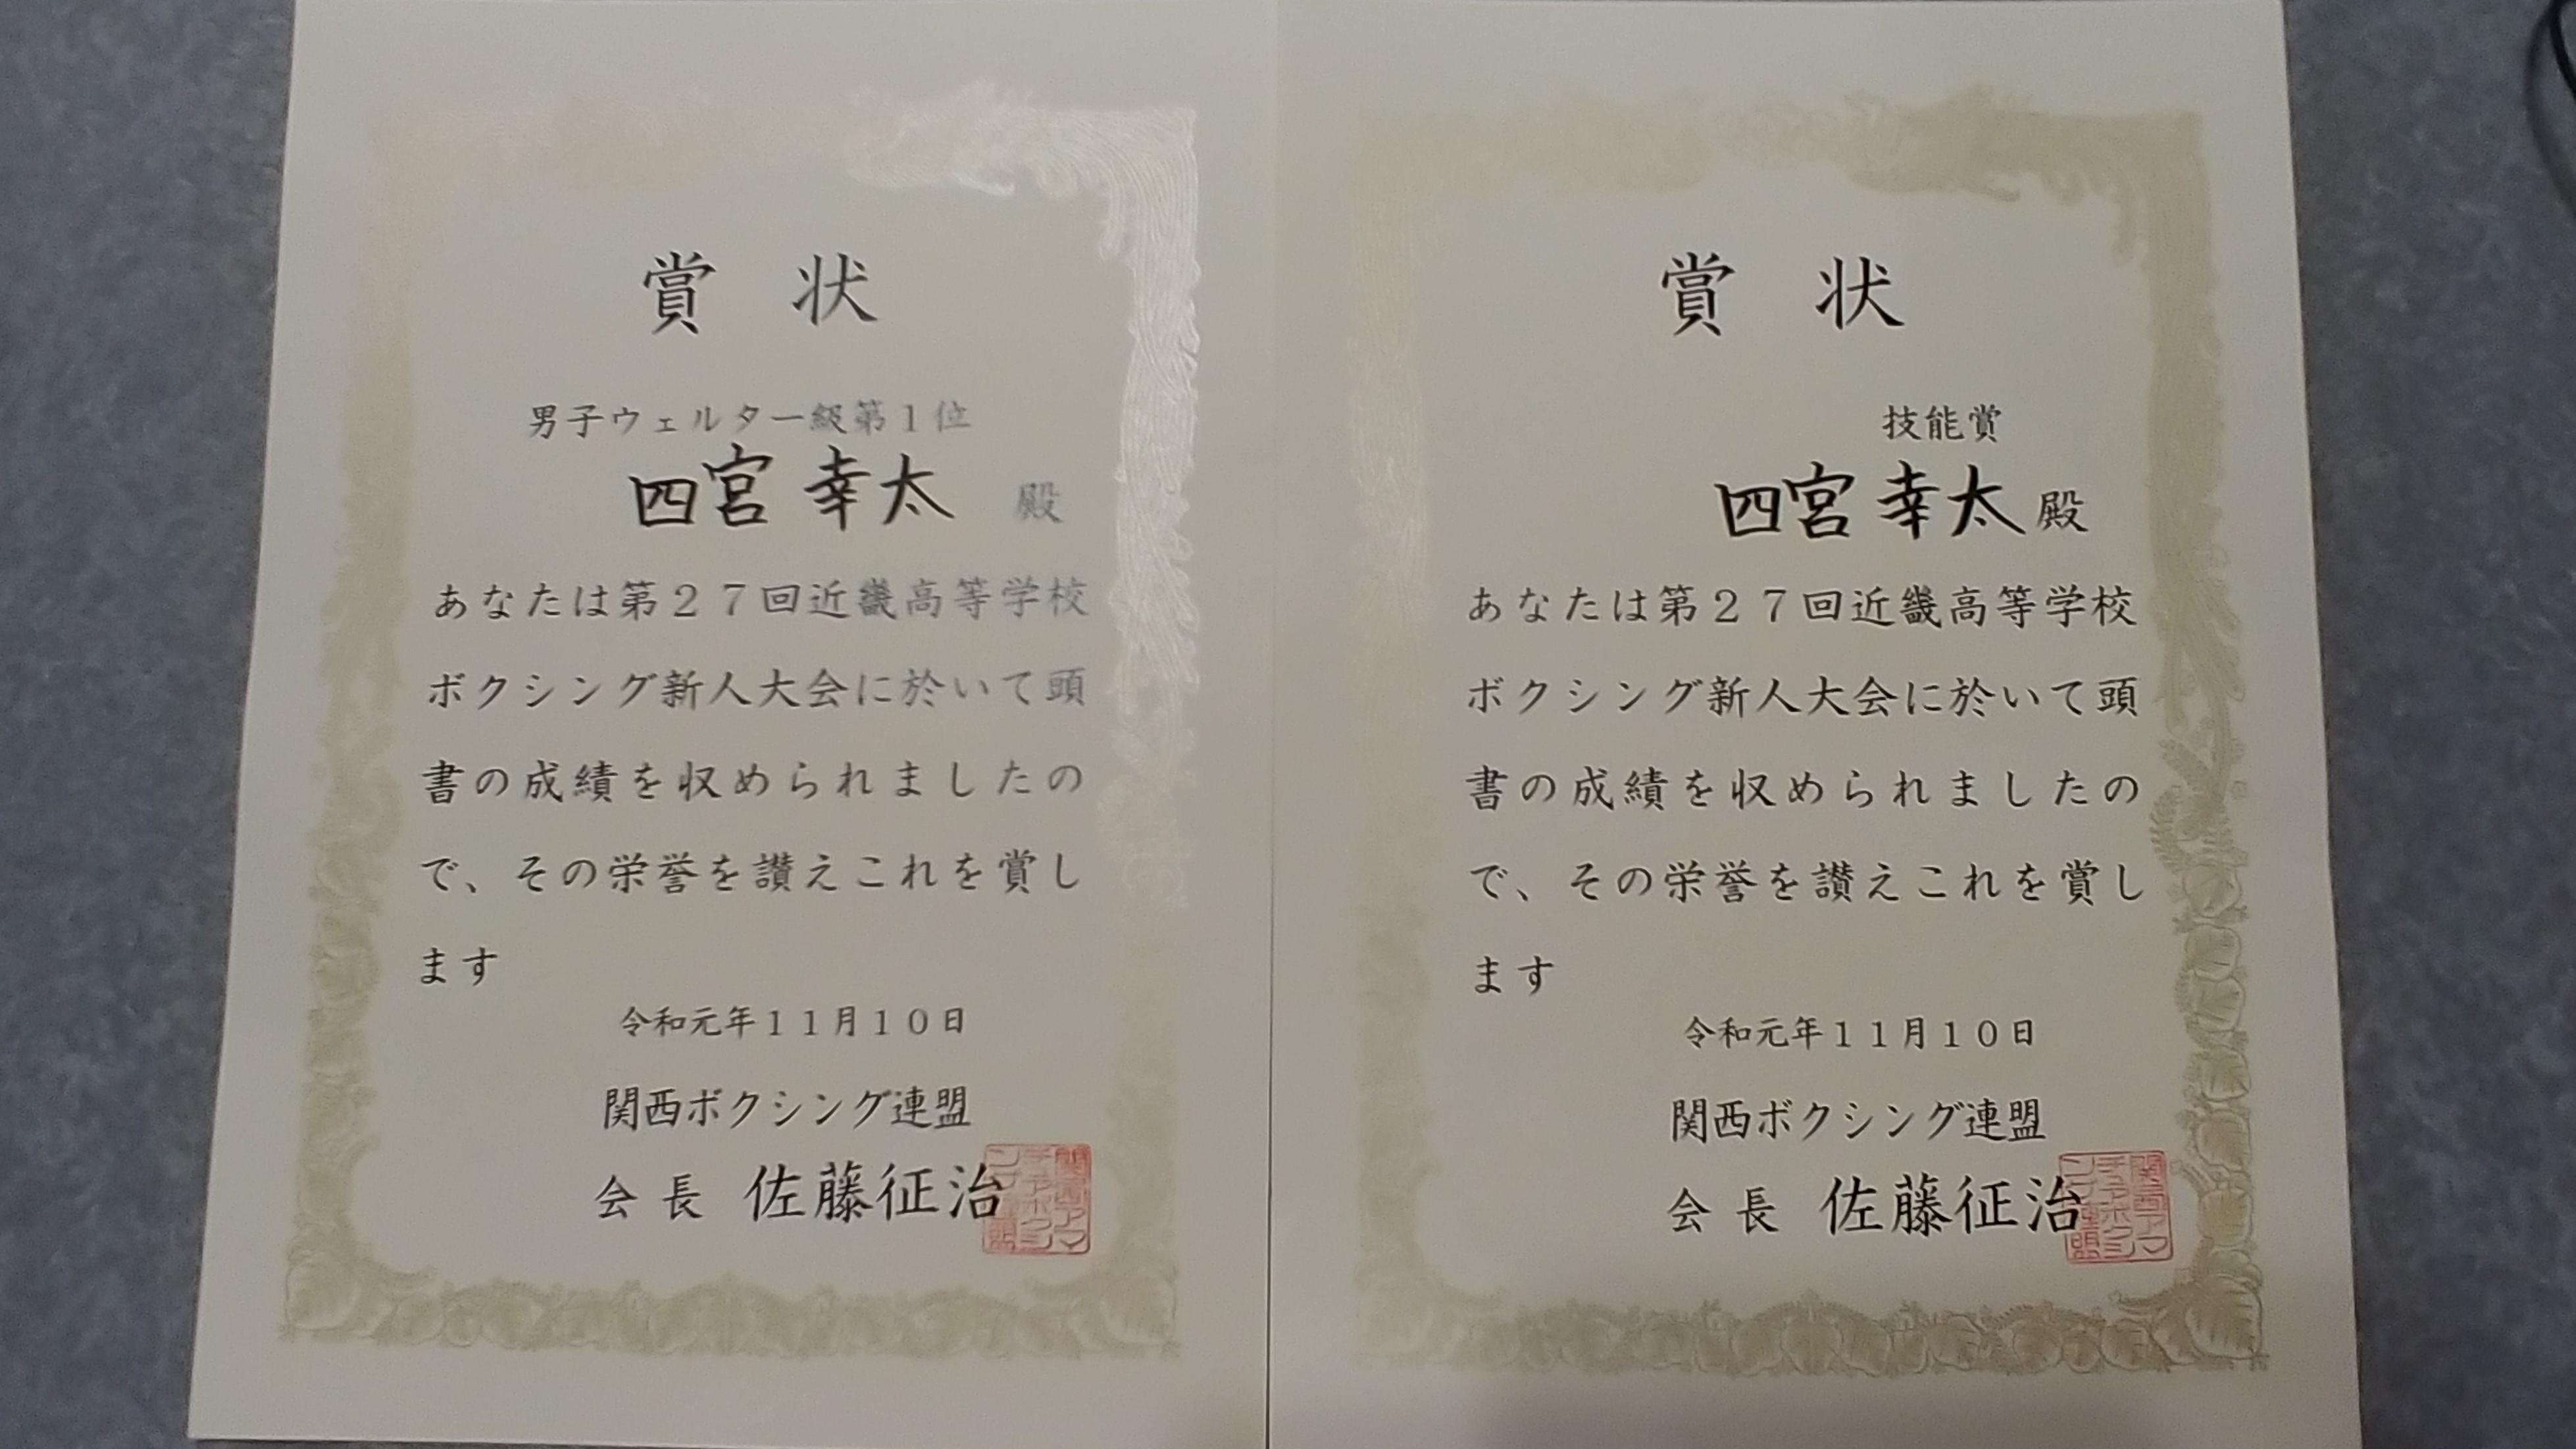 賞状
男子ウェルター級第１位
四宮幸太 殿
あなたは第２７回近畿高等学校
ボクシング新人大会に於いて頭
書の成績を収められましたの
で、その栄誉を讃えこれを賞し
ます
令和元年１１月１０日
関西ボクシング連盟
会長 佐藤征治
関西アマ
チュアボクシ
ング連盟
賞状
技能賞
四宮幸太 殿
あなたは第２７回近畿高等学校
ボクシング新人大会に於いて頭
書の成績を収められましたの
で、その栄誉を讃えこれを賞し
ます
令和元年１１月１０日
関西ボクシング連盟
会長 佐藤征治
関西アマ
チュアボクシ
ング連盟